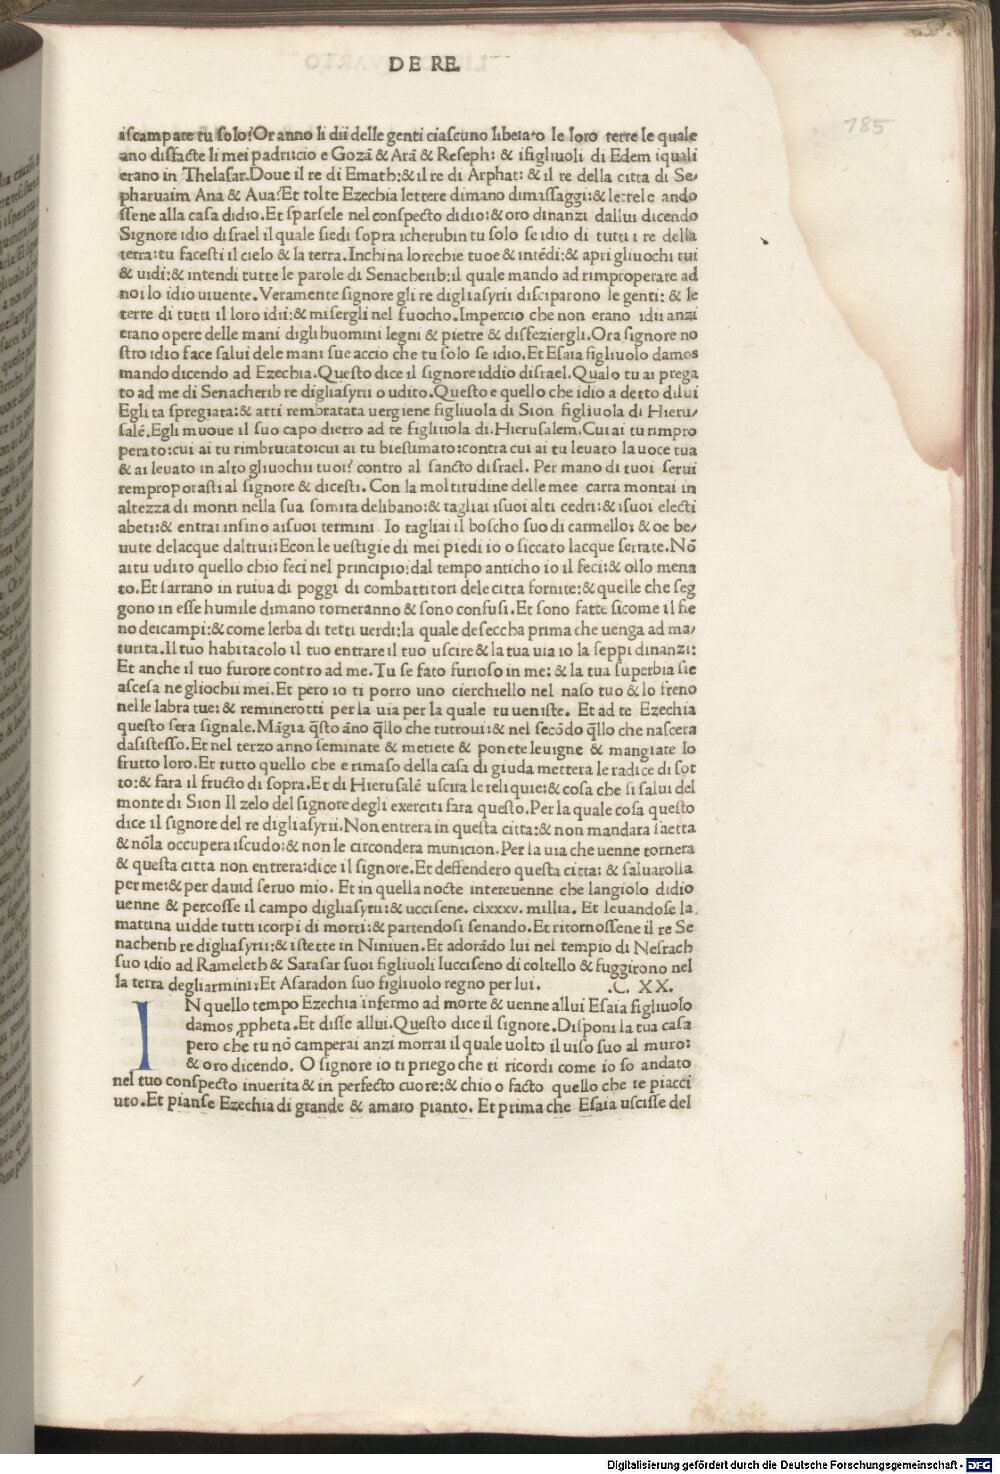 DE RE
185
iscampare tu solo?Or anno li dii delle genti ciascuno liberato le loro terre le quale
ano disfacte li mei padri:cio e Gozā & Arā & Reseph: & ifigliuoli di Edem iquali
erano in Thelasar.Doue il re di Emath:& il re di Arphat: & il re della citta di Se/
pharuaim Ana & Aua?Et tolte Ezechia lettere dimano dimassaggi:& lectele ando
ssene alla casa didio.Et sparsele nel conspecto didio:& oro dinanzi dallui dicendo
Signore idio disrael il quale siedi sopra icherubin tu solo se idio di tutti i re della
terra:tu facesti il cielo & la terra.Inchina lorechie tuoe & intēdi:& apri gliuochi tui
& uidi:& intendi tutte le parole di Senacherib:il quale mando ad rimproperare ad
noi lo idio uiuente.Veramente signore gli re digliasyrii disciparono le genti: & le
terre di tutti il loro idii:& misergli nel fuocho.Impercio che non erano idii anzi
erano opere delle mani digli huomini legni & pietre & disfeziergli.Ora signore no
stro idio face salui dele mani sue accio che tu solo se idio.Et Esaia figliuolo damos
mando dicendo ad Ezechia.Questo dice il signore iddio disrael.Qualo tu ai prega
to ad me di Senacherib re digliasyrii o udito.Questo e quello che idio a detto dilui
Egli ta spregiata:& atti rembratata uergiene figliuola di Sion figliuola di Hieru/
salē.Egli muoue il suo capo dietro ad te figliuola di.Hierusalem.Cui ai tu rimpro
perato:cui ai tu rimbrutato:cui ai tu biestimato:contra cui ai tu leuato la uoce tua
& ai leuato in alto gliuochii tuoi? contro al sancto disrael. Per mano di tuoi serui
remproporasti al signore & dicesti. Con la moltitudine delle mee carra montai in
altezza di monti nella sua somita delibano:& tagliai isuoi alti cedri:& isuoi electi
abeti:& entrai infino aisuoi termini Io tagliai il boscho suo di carmello: & oe be/
uute delacque daltrui:Econ le uestigie di mei piedi io o siccato lacque serrate.Nō
ai tu udito quello chio feci nel principio:dal tempo anticho io il feci:& ollo mena
to.Et sarrano in ruiua di poggi di combattitori dele citta fornite:& quelle che seg
gono in esse humile dimano torneranno & sono confusi.Et sono fatte sicome il fie
no deicampi:& come lerba di tetti uerdi:la quale deseccha prima che uenga ad ma/
turita.Il tuo habitacolo il tuo entrare il tuo uscire & la tua uia io la seppi dinanzi:
Et anche il tuo furore contro ad me.Tu se fato furioso in me: & la tua superbia sie
ascesa ne gliochii mei.Et pero io ti porro uno cierchiello nel naso tuo & lo freno
nelle labra tue: & reminerotti per la uia per la quale tu ueniste. Et ad te Ezechia
questo sera signale.Māgia q̄sto āno q̄llo che tutroui:& nel secōdo q̄llo che nascera
dasistesso.Et nel terzo anno seminate & metiete & ponete leuigne & mangiate lo
frutto loro.Et tutto quello che e rimaso della casa di giuda mettera le radice di sot
to:& fara il fructo di sopra.Et di Hierusalē uscira le reliquie:& cosa che si salui del
monte di Sion Il zelo del signore degli exerciti fara questo.Per la quale cosa questo
dice il signore del re digliasyrii.Non entrera in questa citta:& non mandara saetta
& nōla occupera iscudo:& non le circondera municion.Per la uia che uenne tornera
& questa citta non entrera:dice il signore.Et deffendero questa citta: & saluarolla
per me:& per dauid seruo mio. Et in quella nocte intereuenne che langiolo didio
uenne & percosse il campo digliasyrii:& uccisene. clxxxv. millia. Et leuandose la
mattina uidde tutti icorpi di morti:& partendosi senando.Et ritornossene il re Se
nacherib re digliasyrii:& istette in Niniuen.Et adorādo lui nel tempio di Nesrach
suo idio ad Rameleth & Sarasar suoi figliuoli lucciseno di coltello & fuggirono nel
la terra degliarmini:Et Asaradon suo figliuolo regno per lui. .C. XX.
IN quello tempo Ezechia infermo ad morte & uenne allui Esaia figliuolo
damos ꝓpheta.Et disse allui.Questo dice il signore.Disponi la tua casa
pero che tu nō camperai anzi morrai il quale uolto il uiso suo al muro:
& oro dicendo. O signore io ti priego che ti ricordi come io so andato
nel tuo conspecto inuerita & in perfecto cuore:& chio o facto quello che te piacci
uto.Et pianse Ezechia di grande & amaro pianto. Et prima che Esaia uscisse del
Digitalisierung gefördert durch die Deutsche Forschungsgemeinschaft - DFG